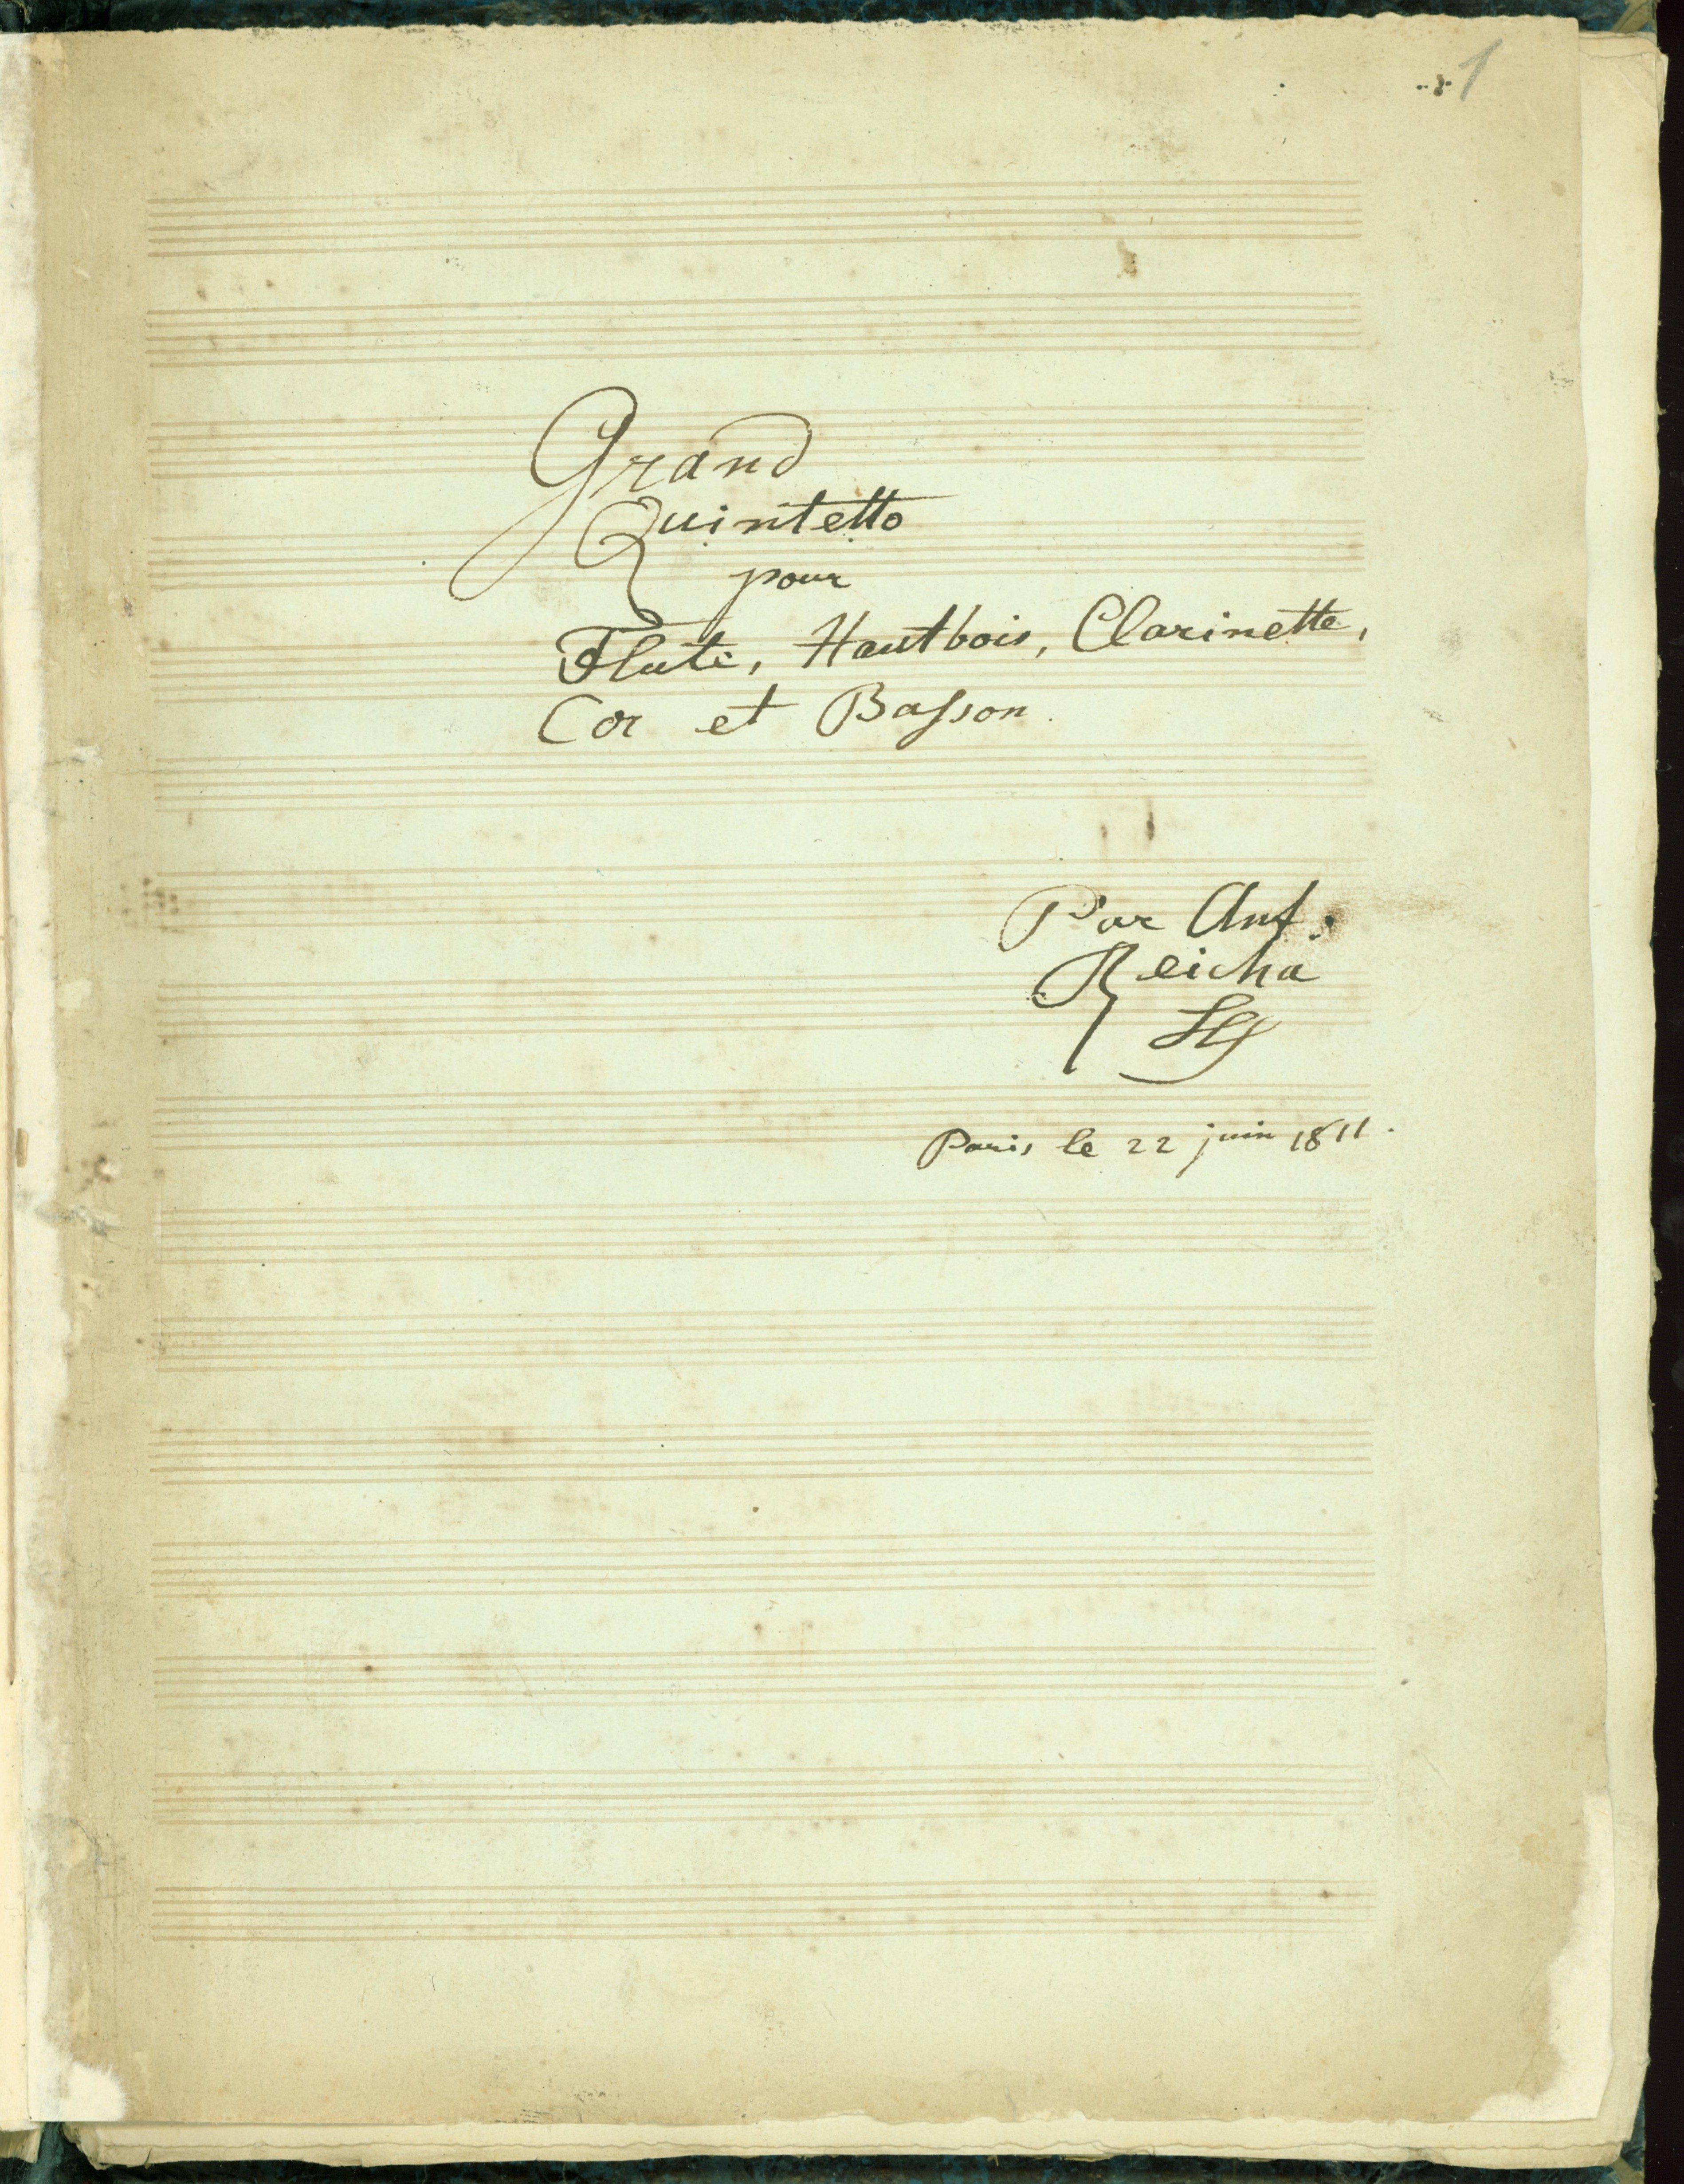 1
Grand
Quintetto
pour
Flute, Hautbois, Clarinette,
Cor et Baſson.
Par Ant:
Reicha
Paris le 22 juin 1811.